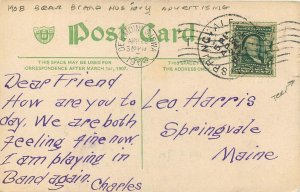 1908 BEAR BRAND HOSIERY ADVERTISING
Post Card
THIS SPACE MAY BE USED FOR
CORRESPONDENCE AFTER MARCH 1st, 1907.
THIS SPACE IS FOR
ADDRESS ONLY.
SPRINGVALE
Dear Friend
How are you to
day. We are both
feeling fine now.
I am playing in
Band again.
Charles
Leo. Harris
Springvale
Maine